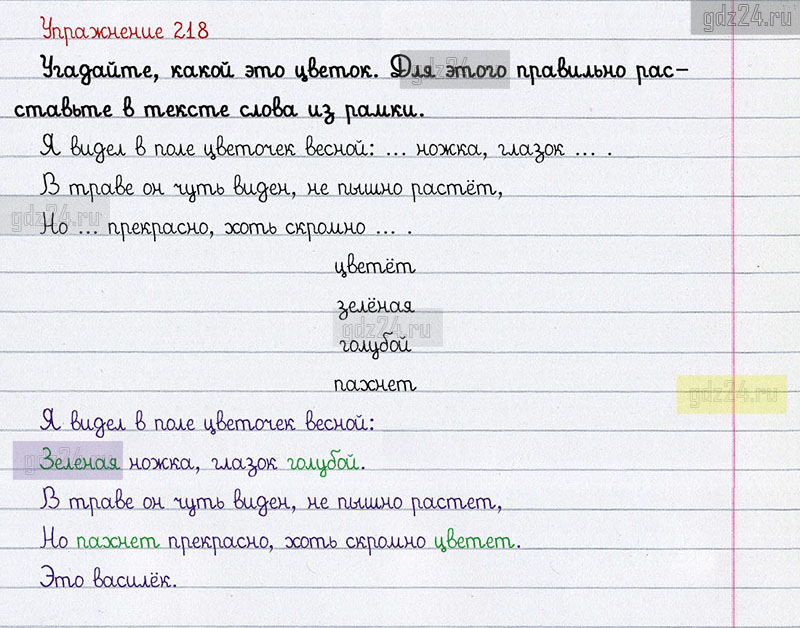 gdz24.ru
Упражнение 218
Угадайте, какой это цветок. Для этого правильно рас-
gdz24.ru
ставьте в тексте слова из рамки.
Я видел в поле цветочек весной: ... ножка, глазок ... .
В траве он чуть виден, не пышно растёт,
gdz24.ru
Но ... прекрасно, хоть скромно ... .
цветёт
зелёная
gdz24.ru
голубой
пахнет
gdz24.ru
Я видел в поле цветочек весной:
Зеленая ножка, глазок голубой.
gdz24.ru
В траве он чуть виден, не пышно растет,
Но пахнет прекрасно, хоть скромно цветет.
Это василёк.